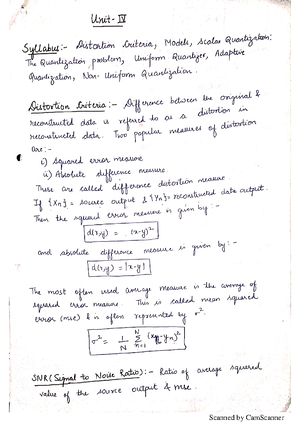 Unit - IV
Syllabus:- Distortion Criteria, Models, Scalar Quantization:
The Quantization problem, Uniform Quantizer, Adaptive
Quantization, Non-Uniform Quantization.
Distortion Criteria:- Difference between the original &
reconstructed data is refered to as a distortion in
reconstructed data. Two popular measures of distortion
are:-
i) Squared error measure
ii) Absolute difference measure.
These are called difference distortion measure.
If {Xn} = source output & {Yn} = reconstructed data output.
Then the squared error measure is given by:-
d(x,y) = (x-y)²
and absolute difference measure is given by:-
d(x,y) = |x-y|
The most often used average measure is the average of
squared error measure. This is called mean squared
error (mse) & is often represented by σ²
σ² = 1/N Σ_{n=1}^{N} (xn-yn)²
SNR (Signal to Noise Ratio):- Ratio of average squared
value of the source output & mse.
Scanned by CamScanner